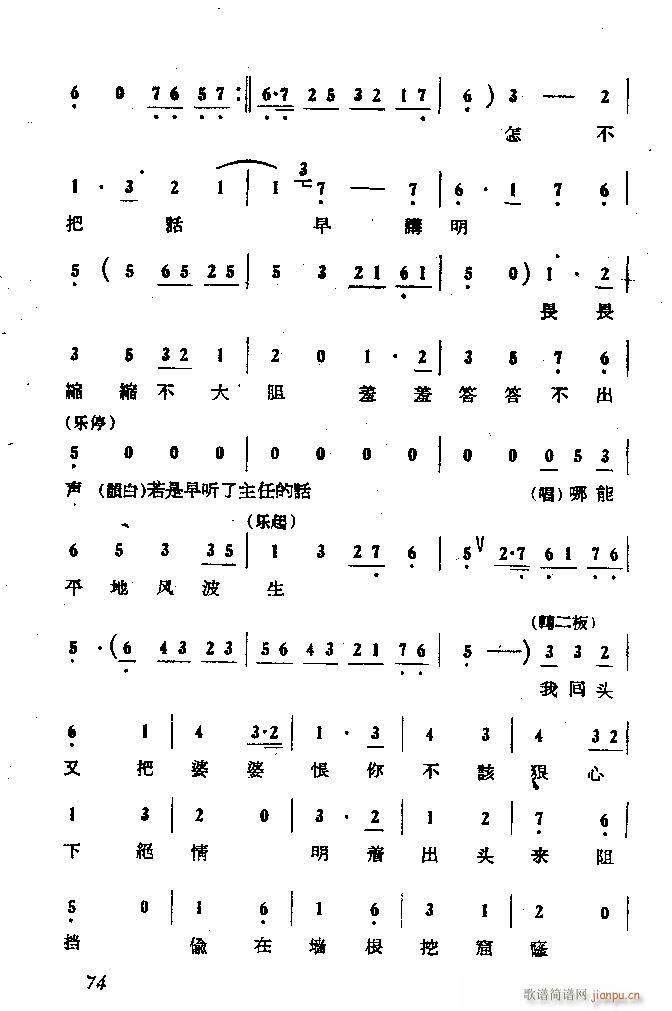 6 0 7 6 5 7 :‖ 6·7 2 5 3 2 1 7 | 6 ) 3 — 2
怎 不
1 · 3 2 1 | 1 3 7 — 7 | 6 · 1 7 6
把 話 早 講 明
5 ( 5 6 5 2 5 | 5 3 2 1 6 1 | 5 0 ) 1 · 2
畏 畏
3 5 3 2 1 | 2 0 1 · 2 | 3 5 7 6
縮 縮 不 大 阻 羞 羞 答 答 不 出
(乐停)
5 0 0 0 | 0 0 0 0 | 0 0 0 5 3
声 (韻白)若是早听了主任的話 (唱)哪 能
(乐起)
6 5 3 3 5 | 1 3 2 7 6 | 5 V 2·7 6 1 7 6
平 地 风 波 生
(轉二板)
5 · ( 6 4 3 2 3 | 5 6 4 3 2 1 7 6 | 5 — ) 3 3 2
我 囘 头
6 1 | 4 3·2 | 1 · 3 | 4 3 | 4 3 2
又 把 婆 婆 恨 你 不 該 狠 心
1 3 | 2 0 | 3 · 2 | 1 2 | 7 6
下 絕 情 明 着 出 头 来 阻
5 0 | 1 6 | 1 6 | 3 1 | 2 0
挡 偸 在 墙 根 挖 窟 窿
74
歌谱简谱网
jianpu.cn